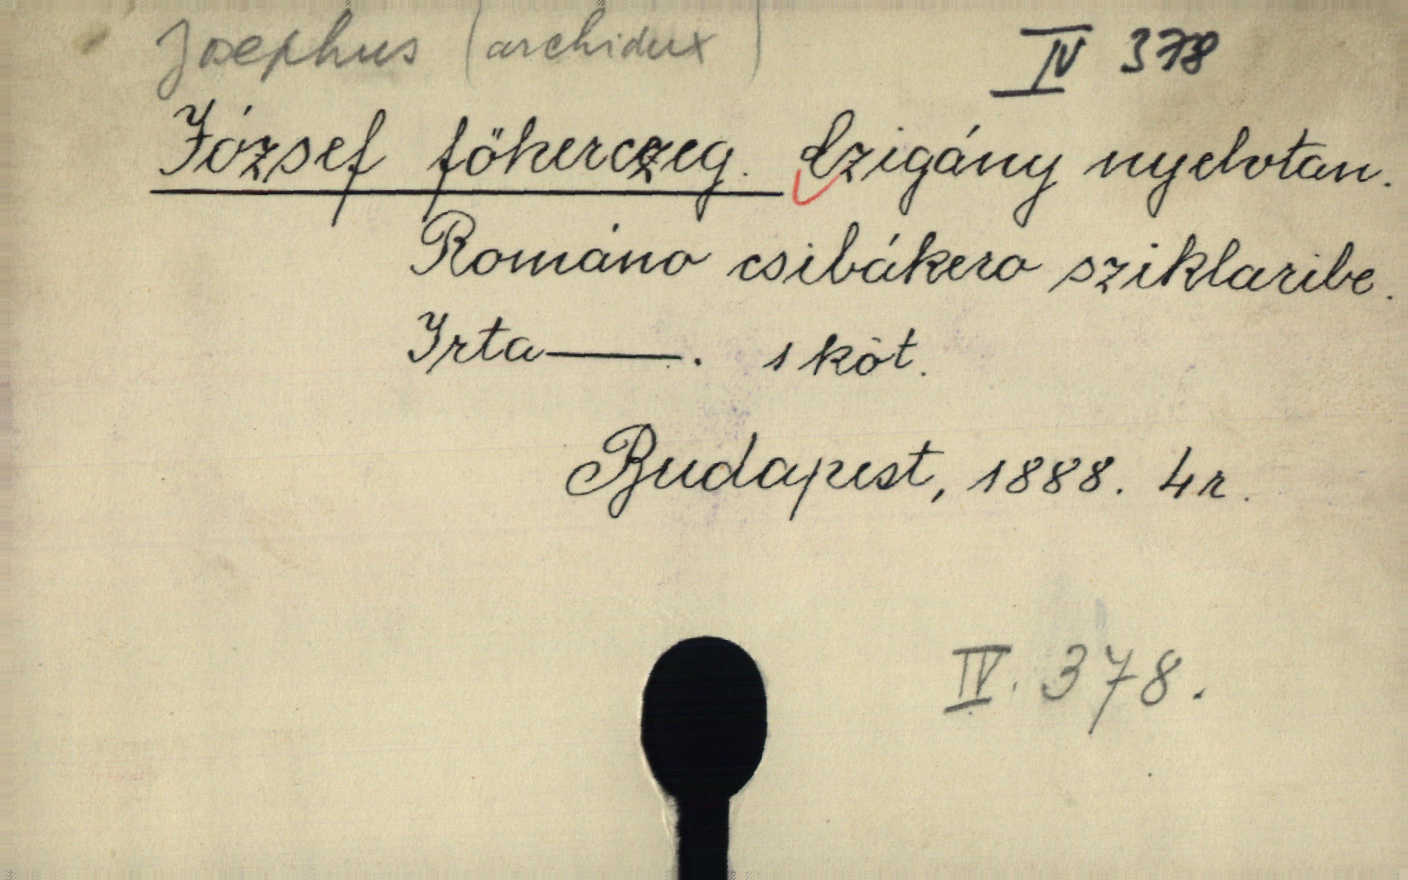 Josephus (archidux)
IV 378
József főherczeg. Czigány nyelvtan.
Románo csibákero sziklaribe.
Irta —. 1 köt.
Budapest, 1888. 4r.
IV. 378.